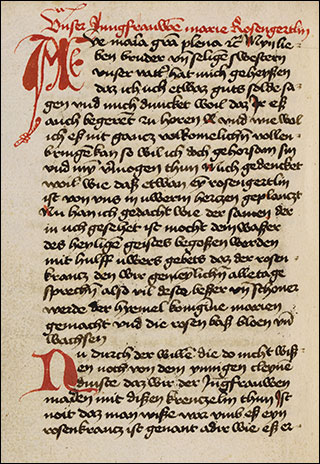 Unser Jungfrauwen marie Rosengertlin
AVe maria gracia plena etc Myn lie-
ben bruder vn seligen swestern
vnser vatter hat mich geheyssen
daz ich uch etwaz guts solde sa-
gen vnd mich duncket woil daz ir eß
auch begeret zu horen vnd wie wol
ich eß nit gancz volkomelichen vollen-
bringen kan so wil ich doch gehorsam sin
vnd myn vermogen thun Ich gedencket
woil wie daß etwan eyn rosengertlin
ist von vns in uwerm herczen geplanczt
Nu han ich gedacht wie der samen der
in uch gesehet ist mocht dem waßer
des heyligen geistes begoßen werden
mit hulff uwers gebets daz der rosen-
krancz den wir gemeynlichen alletage
sprechen also vil dester beßer vnd schoner
werde der hymel konigine marien
gemacht vnd die rosen baß bloen vnd
wachsen
Nu durch der willen die do nicht wiß-
en noch von dem ynnigen cleynen
dinste daz wir der Jungfrauwen
marien mit dißen krenczelin thun Ist
noit daz man wiße war vmb eß eyn
rosenkrancz ist genant adir wie eß er